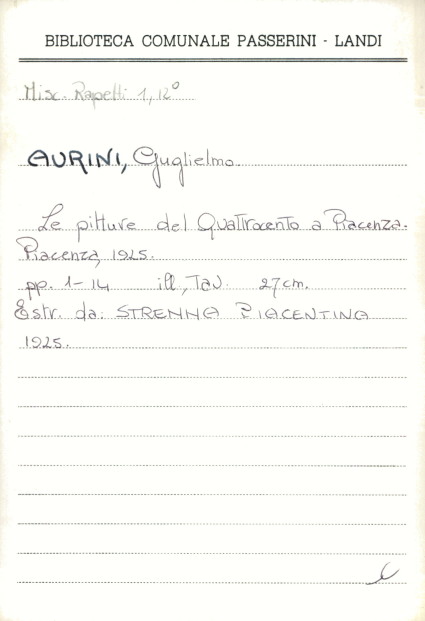 BIBLIOTECA COMUNALE PASSERINI - LANDI
Misc. Rapetti 1, 12°
AURINI, Guglielmo.
Le pitture del Quattrocento a Piacenza.
Piacenza, 1925.
pp. 1-14 ill, Tav. 27 cm.
Estr. da: STRENNA PIACENTINA
1925.